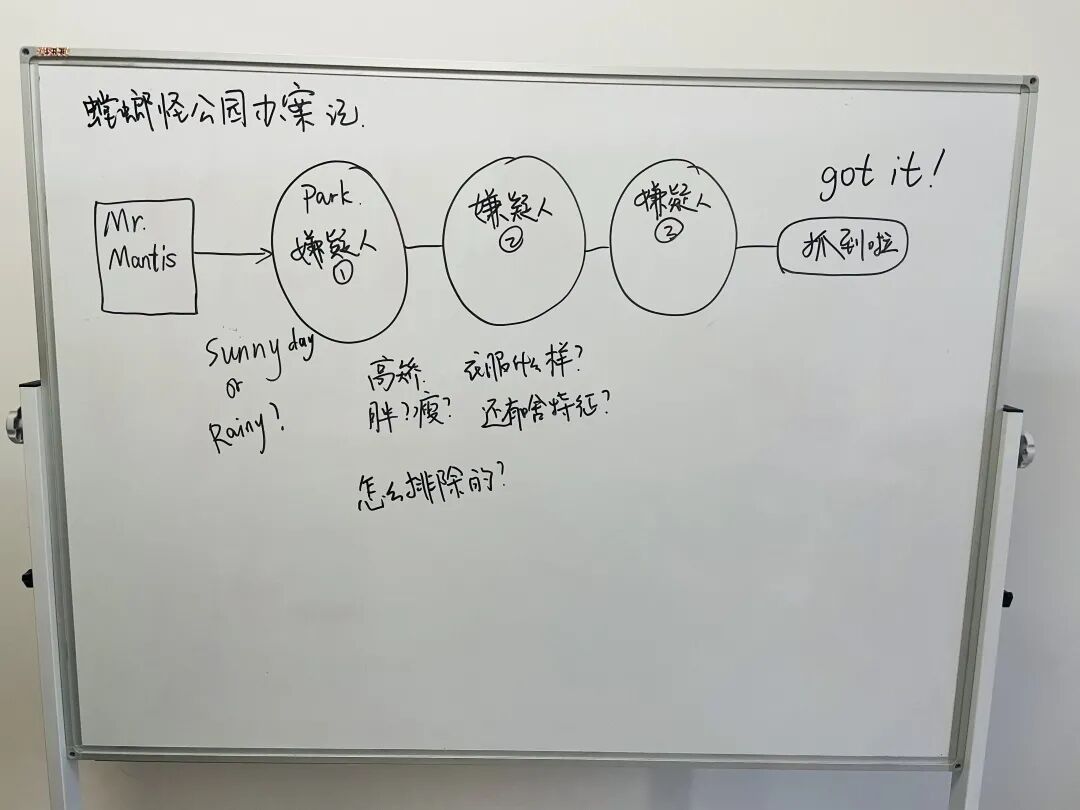 螳螂怪公园办案记.
got it!
Mr.
Mantis
Park.
嫌疑人
①
嫌疑人
②
嫌疑人
③
抓到啦
Sunny day
or
Rainy?
高矫. 衣服什么样?
胖?瘦? 还有啥特征?
怎么排除的?